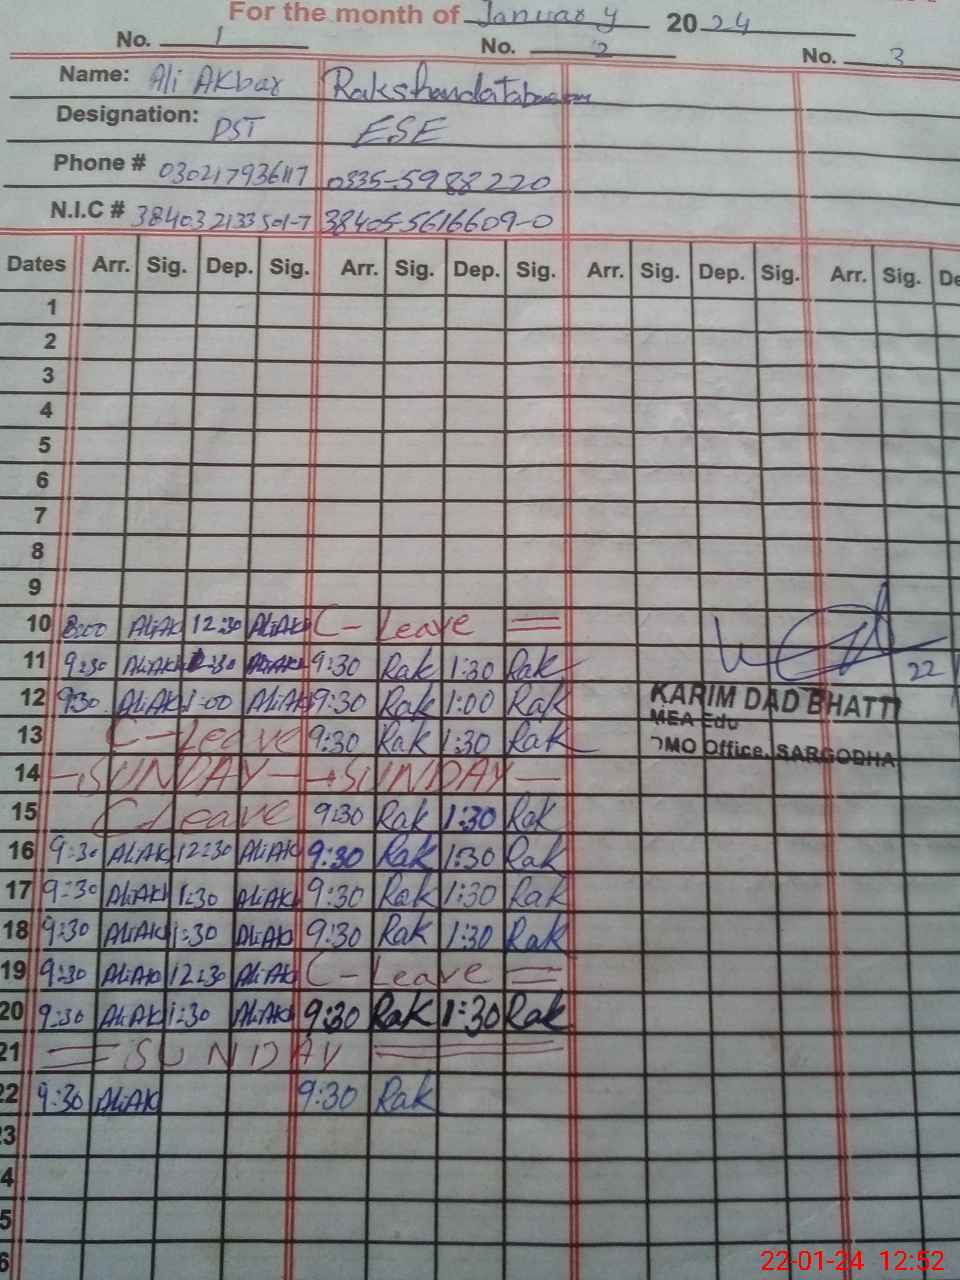 For the month of January 2024
No. 1 No. 2 No. 3
Name: Ali Akbar
Designation: PST ESE
Phone # 0335-5988220
N.I.C # 38405-5616609-0
Dates Arr. Sig. Dep. Sig. Arr. Sig. Dep. Sig. Arr. Sig. Dep. Sig. Arr. Sig. De
1
2
3
4
5
6
7
8
9
10 8:00 AliAk 12:30 AliAk C-Leave =
11 9:30 AliAk :30 AliAk 9:30 Rak 1:30 Rak 22
12 930 AliAk 1:00 AliAk 9:30 Rak 1:00 Rak KARIM DAD BHATTI
MEA Edu
13 C-Leave 9:30 Rak 1:30 Rak
DMO Office, SARGODHA
14 -SUNDAY- -SUNDAY-
15 C Leave 9:30 Rak 1:30 Rak
16 9:30 AliAk 12:30 AliAk 9:30 Rak 1:30 Rak
17 9:30 AliAk 1:30 AliAk 9:30 Rak 1:30 Rak
18 9:30 AliAk 1:30 AliAk 9:30 Rak 1:30 Rak
19 9:30 AliAk 12:30 AliAk C-Leave =
20 9:30 AliAk 1:30 AliAk 9:30 Rak 1:30 Rak
21 = SUNDAY =
22 9:30 AliAk 9:30 Rak
3
4
5
6
22-01-24 12:52